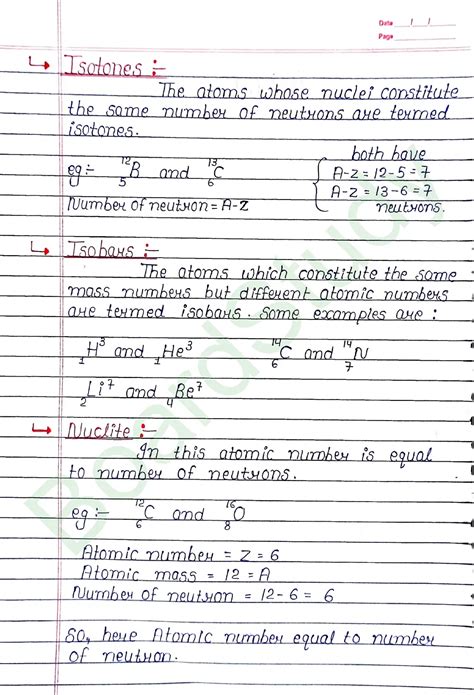 Date / /
Page
↳ Isotones :-
The atoms whose nuclei constitute
the same number of neutrons are termed
isotones.
eg :- ¹²₅B and ¹³₆C
Number of neutron = A-Z
both have
A-Z = 12-5 = 7
A-Z = 13-6 = 7
neutrons.
↳ Isobars :-
The atoms which constitute the same
mass numbers but different atomic numbers
are termed isobars. Some examples are :
₁H³ and ₁He³ ¹⁴₆C and ¹⁴₇N
₂Li⁷ and ₄Be⁷
↳ Nuclite :-
In this atomic number is equal
to number of neutrons.
eg :- ¹²₆C and ¹⁶₈O
Atomic number = Z = 6
Atomic mass = 12 = A
Number of neutron = 12-6 = 6
So, here Atomic number equal to number
of neutron.
BoardStudy